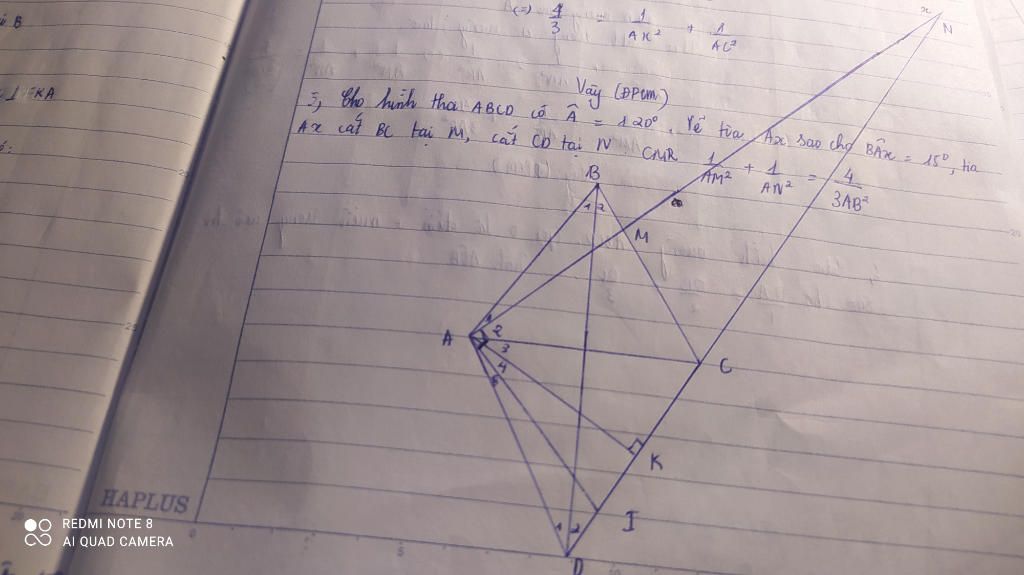 B
⊥ KA
(=) 4/3 = 1/AK² + 1/AC²
Vậy (ĐPCM)
Cho hình thoi ABCD có Â = 120°. Kẻ tia Ax sao cho BÂx = 15°, tia
Ax cắt BC tại M, cắt CD tại N. CMR 1/AM² + 1/AN² = 4/3AB²
x
N
B
1 2
M
A
1
2
3
4
5
C
K
I
1 2
D
HAPLUS
REDMI NOTE 8
AI QUAD CAMERA